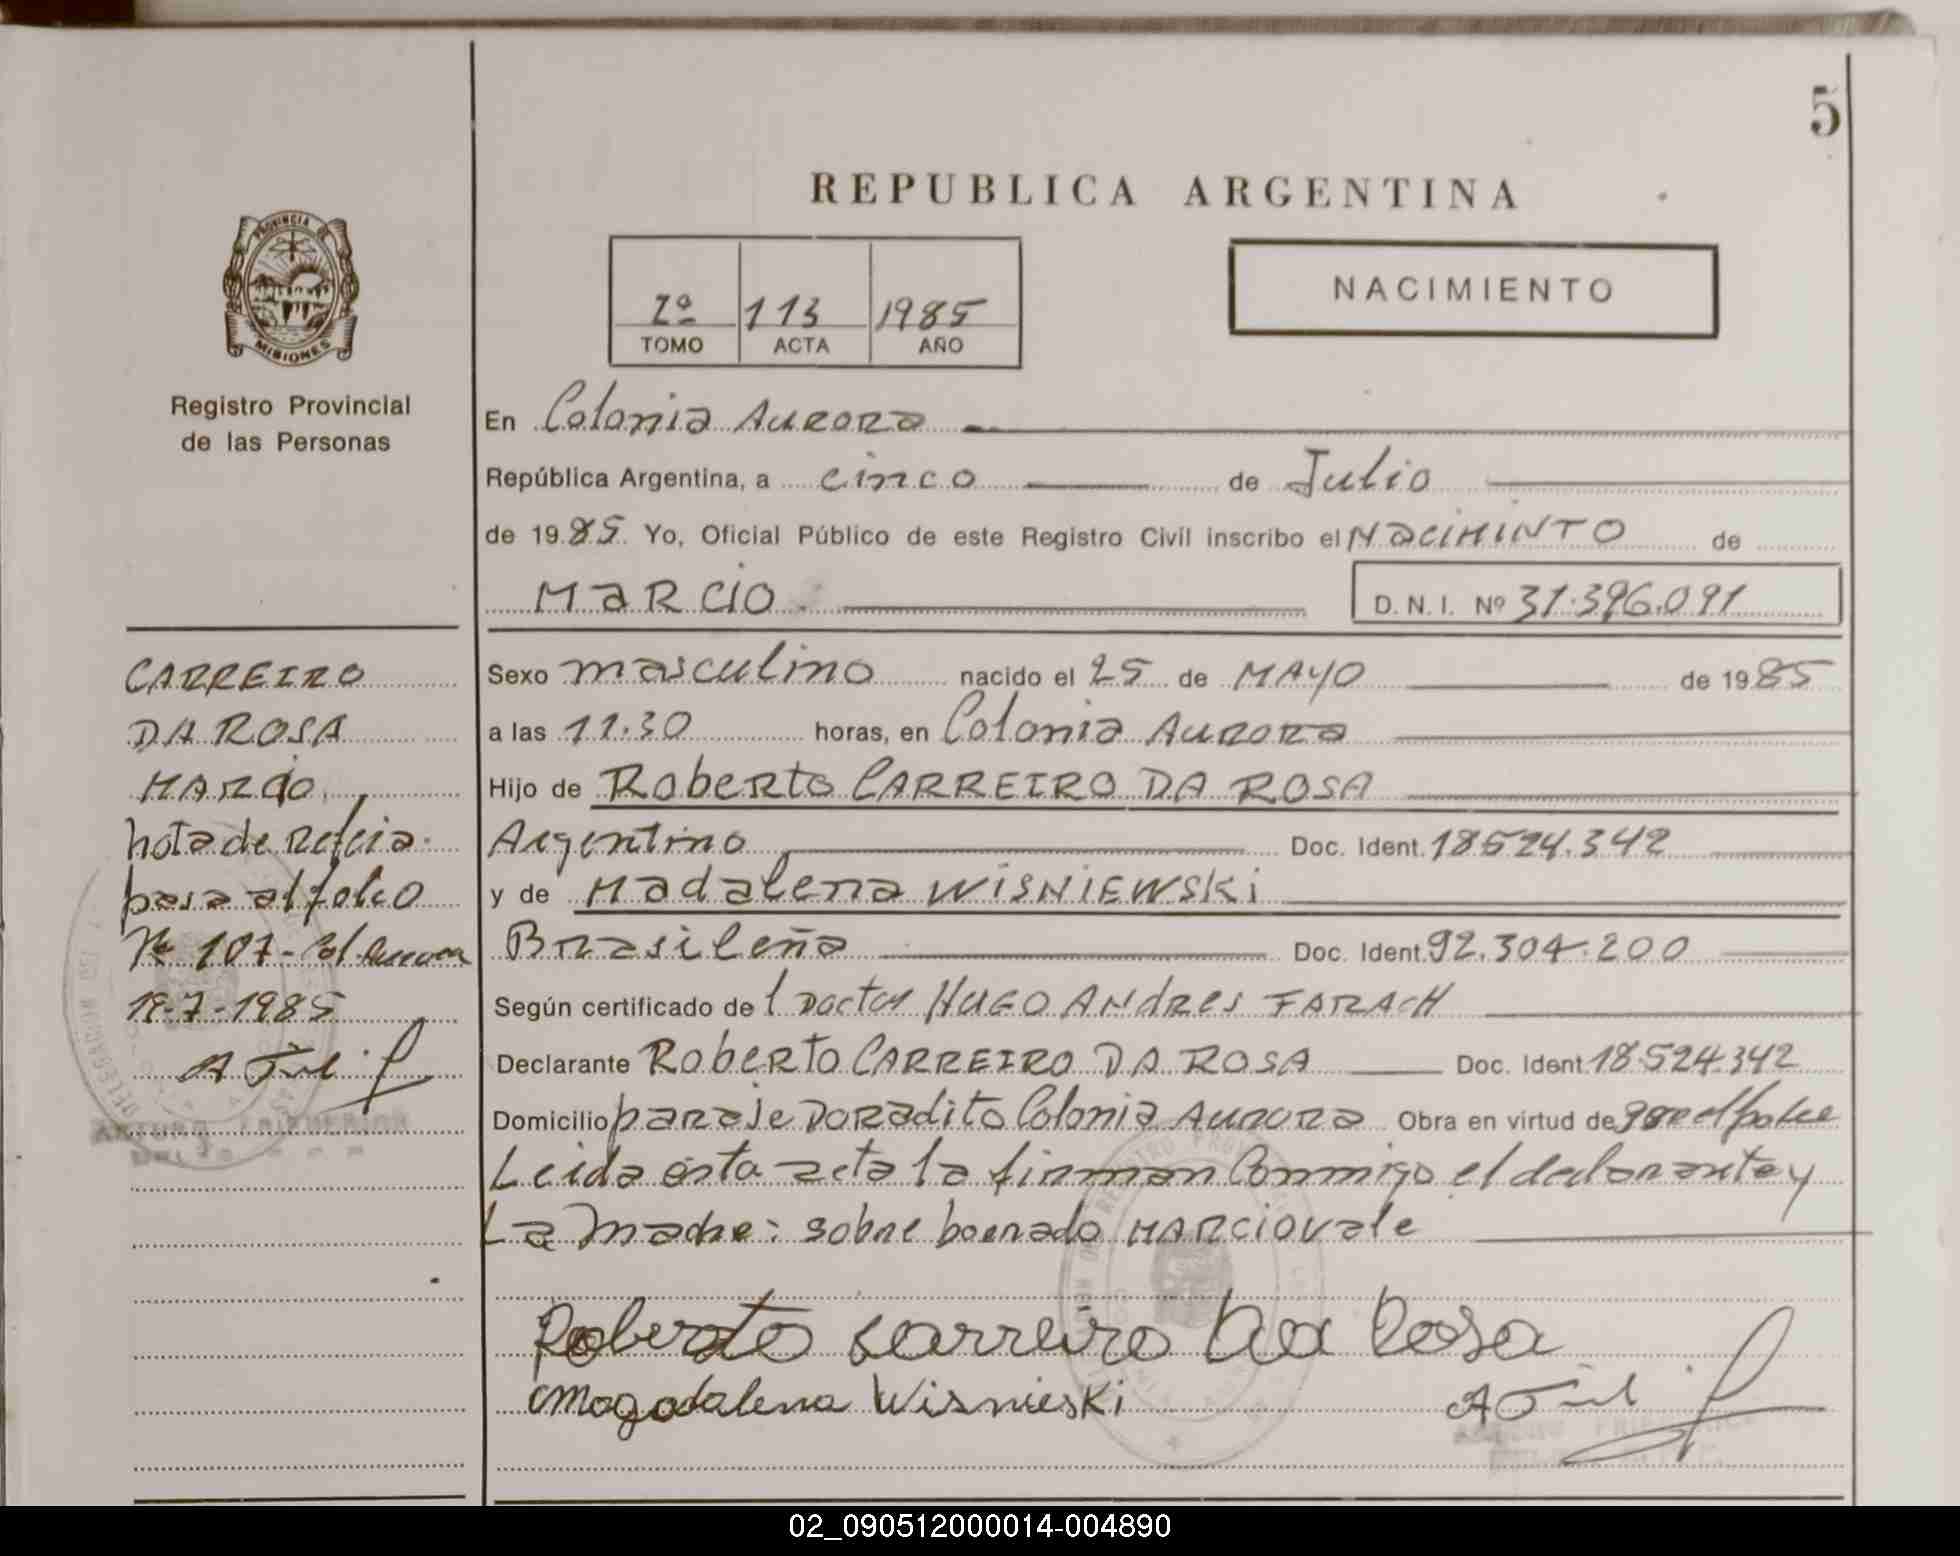 5
REPUBLICA ARGENTINA
PROVINCIA DE
MISIONES
Registro Provincial
de las Personas
2º 113 1985
TOMO ACTA AÑO
NACIMIENTO
En Colonia Aurora
República Argentina, a cinco de Julio
de 1985 Yo, Oficial Público de este Registro Civil inscribo el NaciMiNTO de
MaRCiO D.N.I. Nº 31.396.091
CARREIRO
DA ROSA
MARCIO
nota de Refcia.
pasa al folio
Nº 107-Col. Aurora
19-7-1985
Sexo masculino nacido el 25 de MAYO de 1985
a las 11.30 horas, en Colonia Aurora
Hijo de Roberto CARREIRO DA ROSA
Argentino Doc. Ident. 18524.342
y de Madalena WISNIEWSKi
Brasileña Doc. Ident. 92.304.200
Según certificado del Doctor HUGO ANdRes FARACH
Declarante RobeRTO CARREIRO DA ROSA Doc. Ident. 18.524.342
Domicilio paraje Doradito Colonia Aurora Obra en virtud de ser el padre
Leida esta acta la firman Conmigo el declarante y
La Madre: sobre borrado MARCIO vale
Roberto Carreiro Da Rosa
Magadalena Wisnieski
02_090512000014-004890